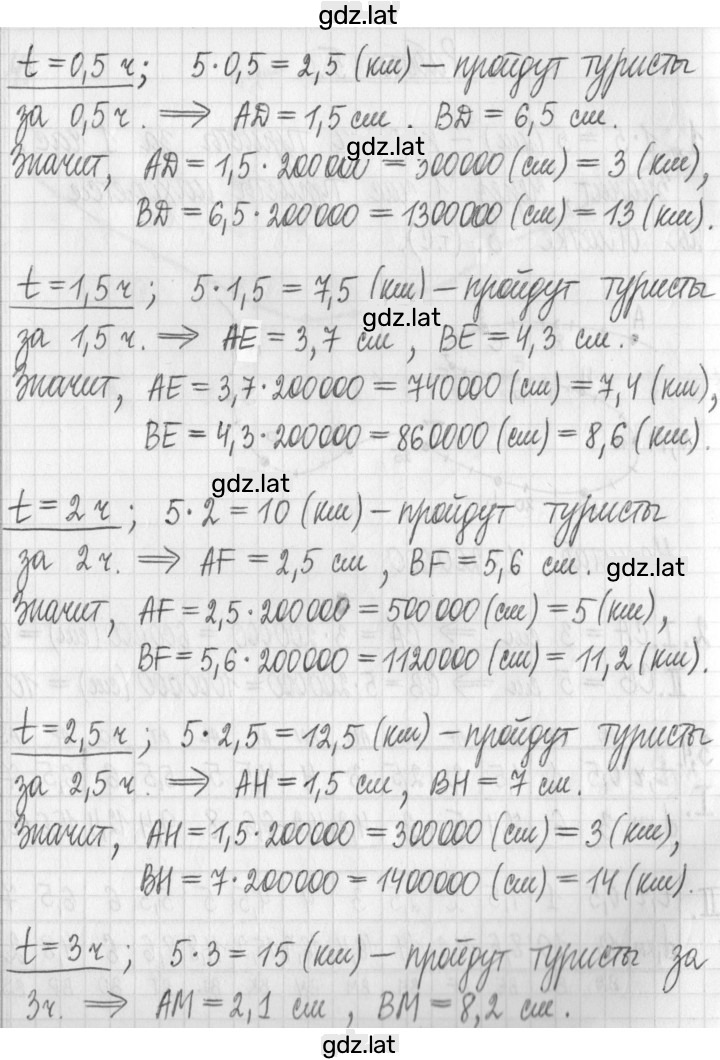 gdz.lat
t = 0,5 ч; 5·0,5 = 2,5 (км) – пройдут туристы
за 0,5 ч. ⟹ AD = 1,5 см. BD = 6,5 см.
gdz.lat
Значит, AD = 1,5·200000 = 300000 (см) = 3 (км),
BD = 6,5·200000 = 1300000 (см) = 13 (км).
t = 1,5 ч; 5·1,5 = 7,5 (км) – пройдут туристы
gdz.lat
за 1,5 ч. ⟹ AE = 3,7 см, BE = 4,3 см.
Значит, AE = 3,7·200000 = 740000 (см) = 7,4 (км),
BE = 4,3·200000 = 860000 (см) = 8,6 (км).
gdz.lat
t = 2 ч; 5·2 = 10 (км) – пройдут туристы
за 2 ч. ⟹ AF = 2,5 см, BF = 5,6 см.
gdz.lat
Значит, AF = 2,5·200000 = 500000 (см) = 5 (км),
BF = 5,6·200000 = 1120000 (см) = 11,2 (км).
t = 2,5 ч; 5·2,5 = 12,5 (км) – пройдут туристы
за 2,5 ч. ⟹ AH = 1,5 см, BH = 7 см.
Значит, AH = 1,5·200000 = 300000 (см) = 3 (км),
gdz.lat
BH = 7·200000 = 1400000 (см) = 14 (км).
t = 3 ч; 5·3 = 15 (км) – пройдут туристы за
3 ч. ⟹ AM = 2,1 см, BM = 8,2 см.
gdz.lat